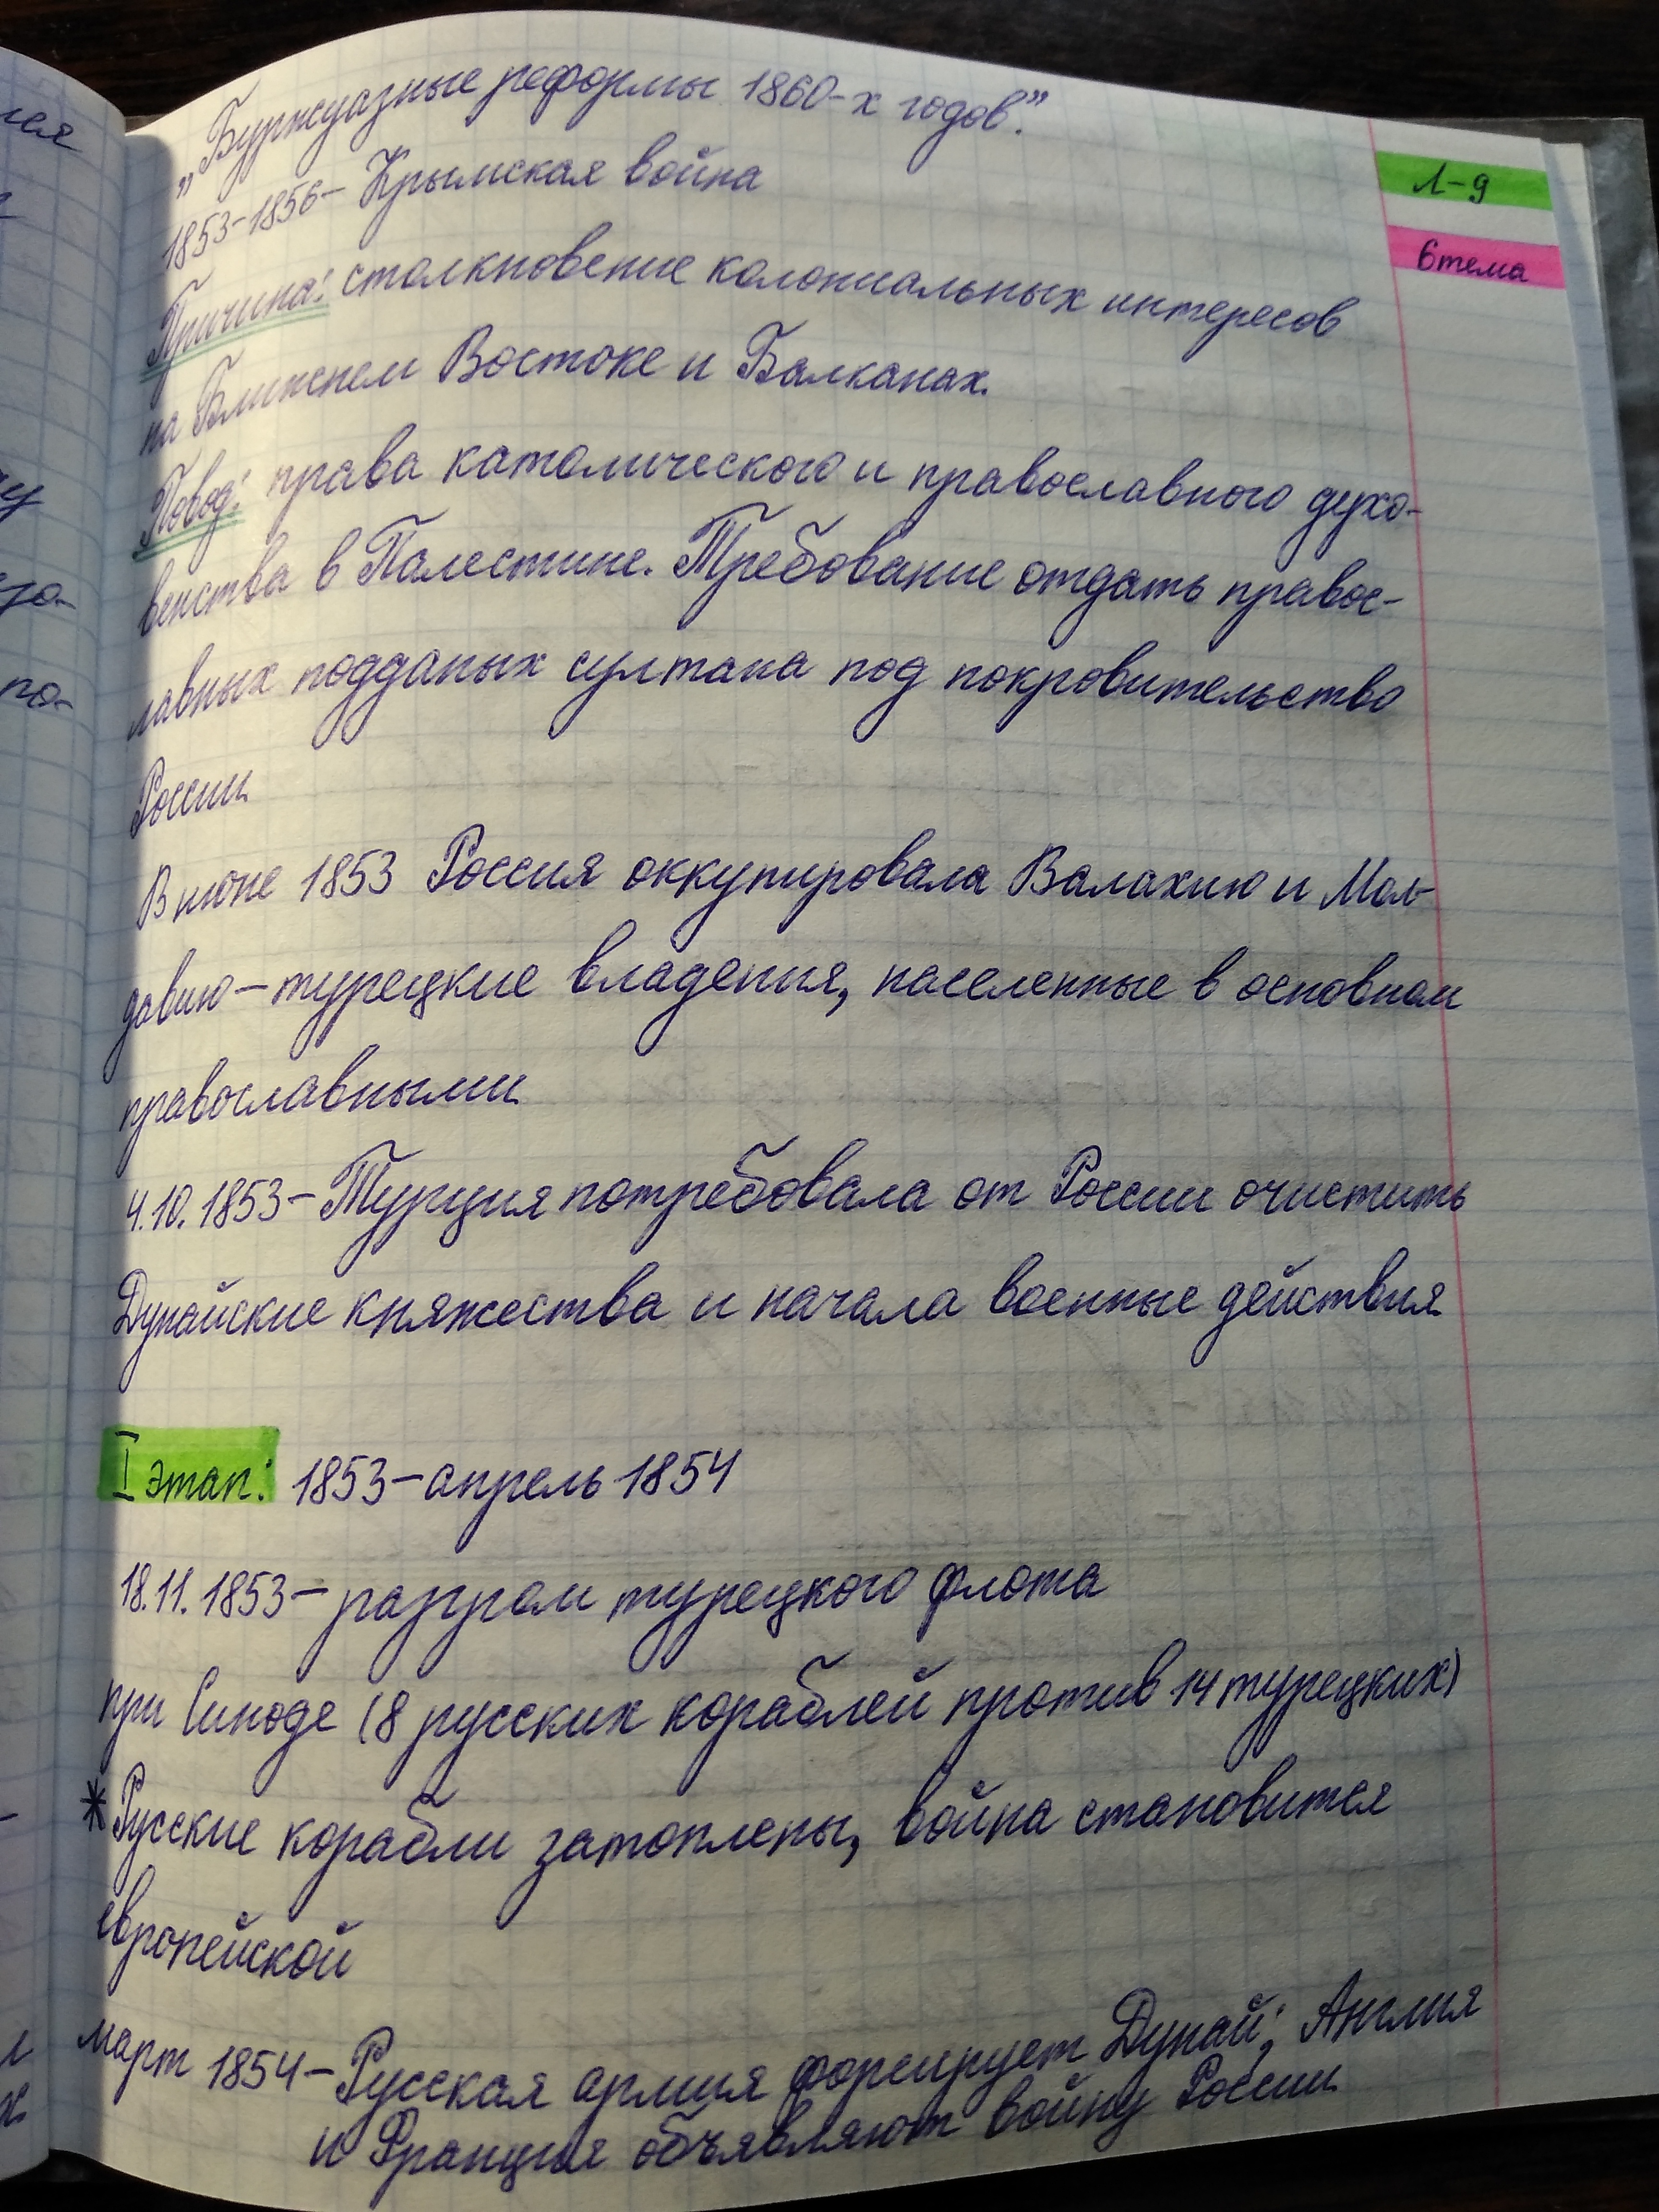 „Буржуазные реформы 1860-х годов".
1853-1856- Крымская война
Л-9
6 тема
Причина: столкновение колониальных интересов
на Ближнем Востоке и Балканах.
Повод: права католического и православного духо-
венства в Палестине. Требование отдать правос-
лавных подданых султана под покровительство
России
В июне 1853 Россия оккупировала Валахию и Мол-
давию-турецкие владения, населенные в основном
православными
4.10.1853-Турция потребовала от России очистить
Дунайские княжества и начала военные действия
I этап: 1853-апрель 1854
18.11.1853- разгром турецкого флота
при Синоде (8 русских кораблей против 14 турецких)
*Русские корабли затоплены, война становится
европейской
март 1854-Русская армия форсирует Дунай; Англия
и Франция объявляют войну России